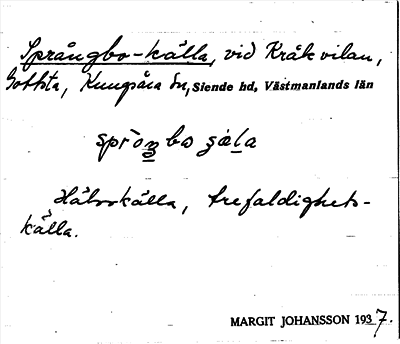 Språngbo-källa, vid Kråkvilan,
Gottsta, Kungsåra sn, Siende hd, Västmanlands län
språŋbo
Hälsokälla, trefaldighets-
källa.
MARGIT JOHANSSON 1937.